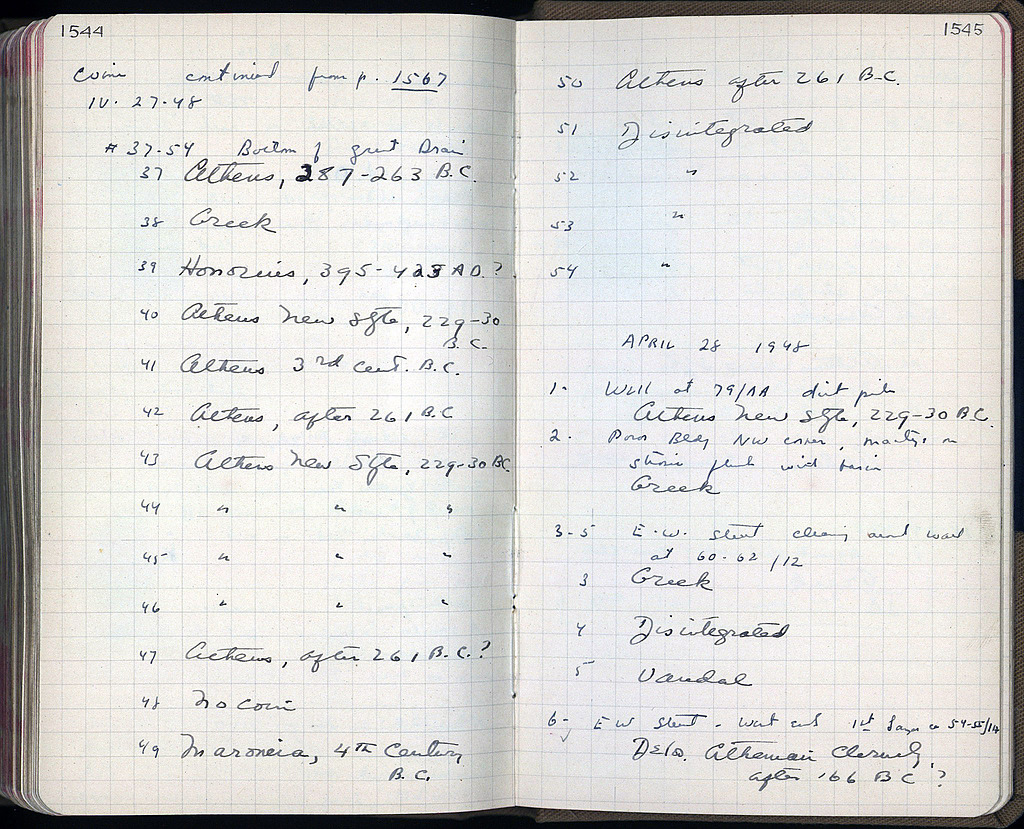 1544
Coins continued from p. 1567
IV. 27.48
# 37-54 Bottom of great Drain
37 Athens, 287-263 B.C.
38 Greek
39 Honorius, 395-423 A.D.?
40 Athens New Style, 229-30
B.C.
41 Athens 3rd cent. B.C.
42 Athens, after 261 B.C
43 Athens New Style, 229-30 BC
44 " " "
45 " " "
46 " " "
47 Athens, after 261 B.C.?
48 No coin
49 Maroneia, 4th Century
B.C.
1545
50 Athens after 261 B.C.
51 Disintegrated
52 "
53 "
54 "
APRIL 28 1948
1- Well at 79/AA dirt pile
Athens New Style, 229-30 B.C.
2. Poros Bldg NW corner, on
with basin
Greek
3-5 E.W. street cleaning west
at 60-62/12
3 Greek
4 Disintegrated
5 Vandal
6- E W street - west end 1st layer 54-55/14
Delos. Athenian Cleruchy,
after 166 B C ?